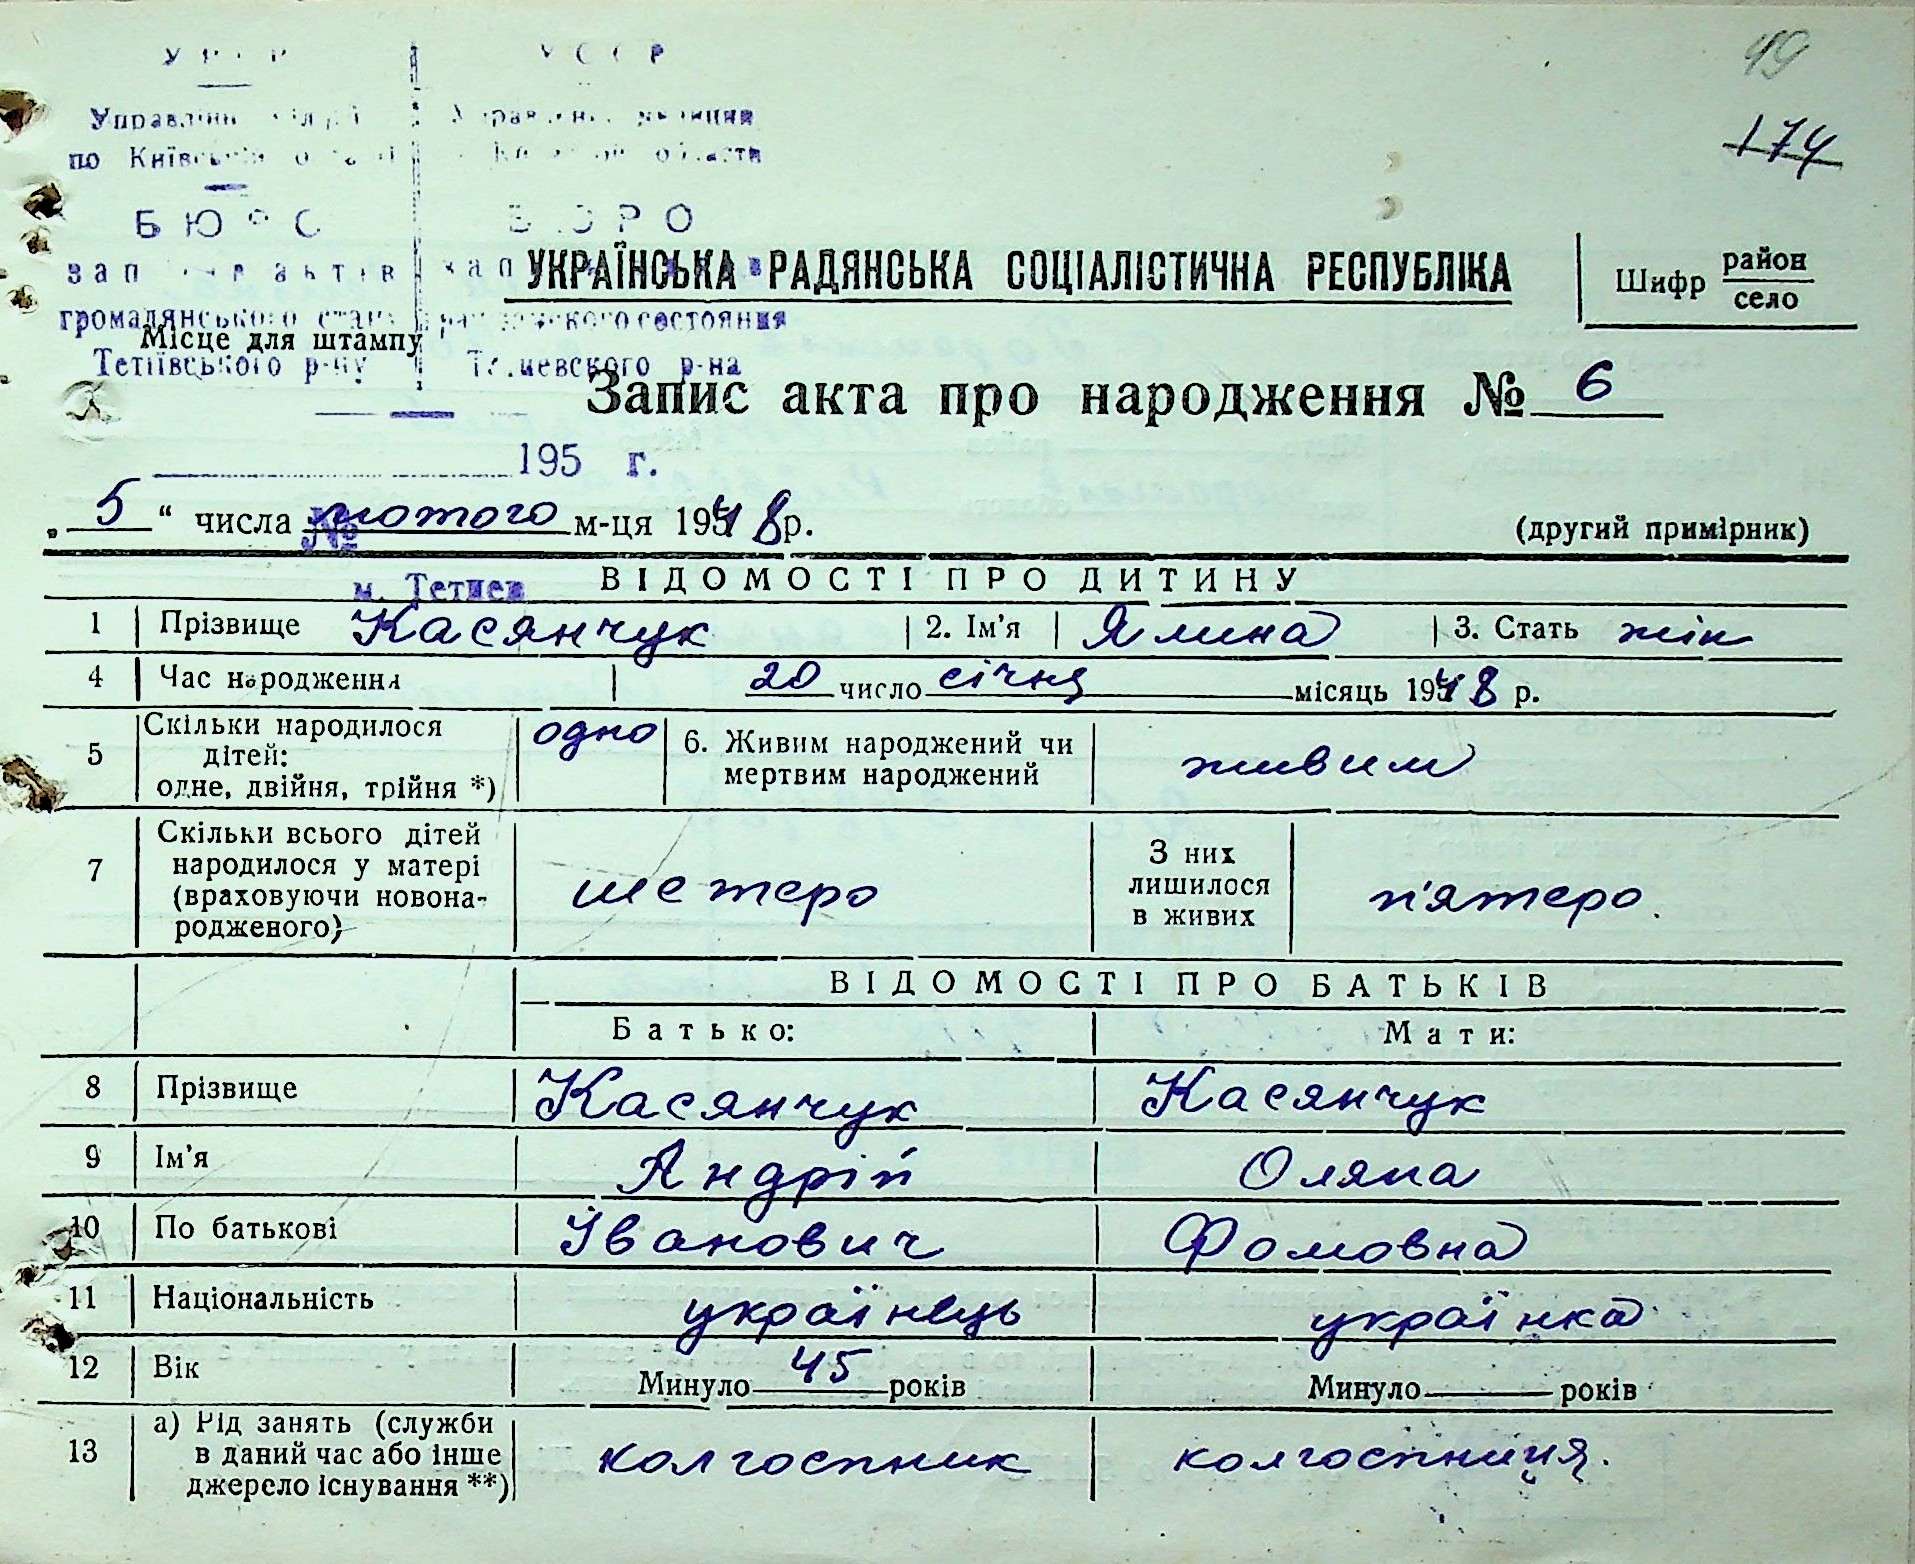 49
174
УРСР
УССР
по Київській
области
БЮРО
БЮРО
УКРАЇНСЬКА РАДЯНСЬКА СОЦІАЛІСТИЧНА РЕСПУБЛІКА
Шифр район
село
громадянського стану
гражданского состояния
Місце для штампу
Тетіївського р-ну
Тетиевского р-на
Запис акта про народження № 6
195 г.
„ 5 “ числа лютого м-ця 1948 р.
(другий примірник)
№
м. Тетиев
ВІДОМОСТІ ПРО ДИТИНУ
1 Прізвище Касянчук 2. Ім'я Ялина 3. Стать жін
4 Час народження 20 число січня місяць 1948 р.
5 Скільки народилося
дітей:
одне, двійня, трійня *)
одно
6. Живим народжений чи
мертвим народжений
живим
7 Скільки всього дітей
народилося у матері
(враховуючи новона-
родженого)
шестеро
З них
лишилося
в живих
п'ятеро.
ВІДОМОСТІ ПРО БАТЬКІВ
Батько: Мати:
8 Прізвище Касянчук Касянчук
9 Ім'я Андрій Оляна
10 По батькові Іванович Фомовна
11 Національність українець українка
12 Вік Минуло 45 років Минуло років
13 а) Рід занять (служби
в даний час або інше
джерело існування **)
колгоспник колгоспниця.